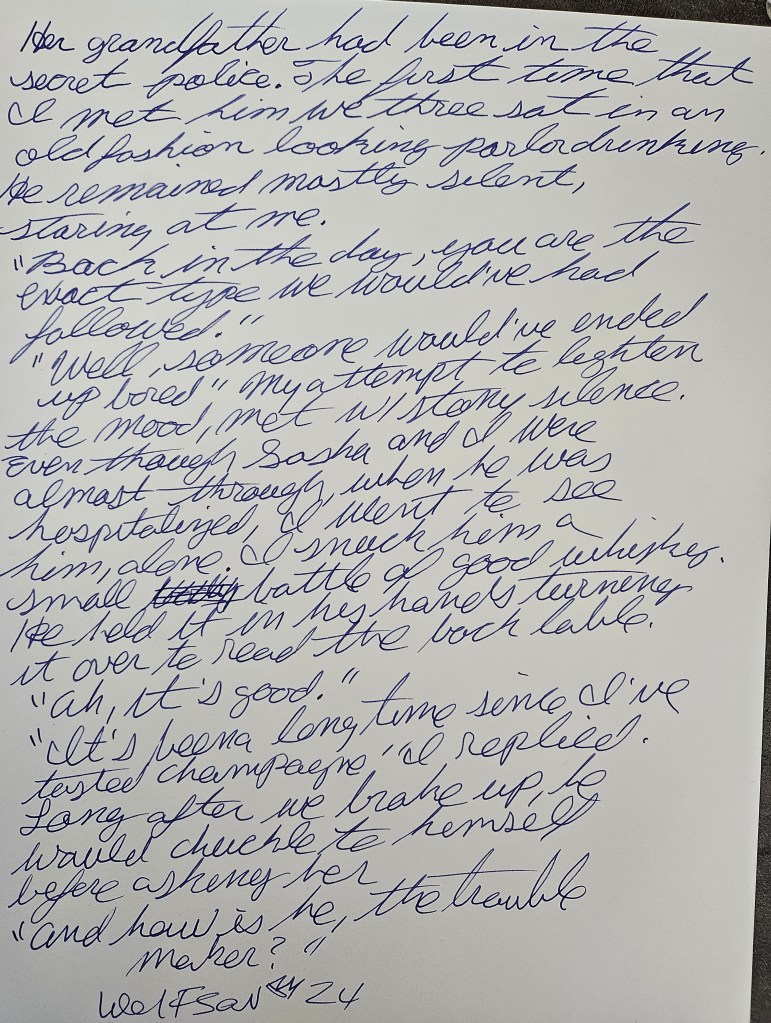 Her grandfather had been in the
secret police. The first time that
I met him we three sat in an
old fashion looking parlor drinking.
He remained mostly silent,
staring at me.
"Back in the day, you are the
exact type we would've had
followed."
"Well, someone would've ended
up bored" My attempt to lighten
the mood, met w/ stony silence.
Even though Sasha and I were
almost through, when he was
hospitalized, I went to see
him, alone. I snuck him a
small bottle of good whiskey.
He held it in his hands turning
it over to read the back lable.
"Ah, it's good."
"It's been a long time since I've
tasted champagne" I replied.
Long after we broke up, he
would chuckle to himself
before asking her
"and how is he, the trouble
maker?"
Wolfson 24